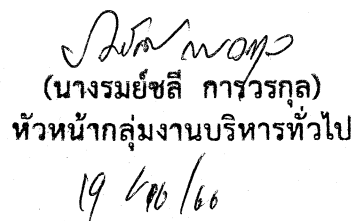 (นางรมย์ชลี การวรกุล)
หัวหน้ากลุ่มงานบริหารทั่วไป
19 /66